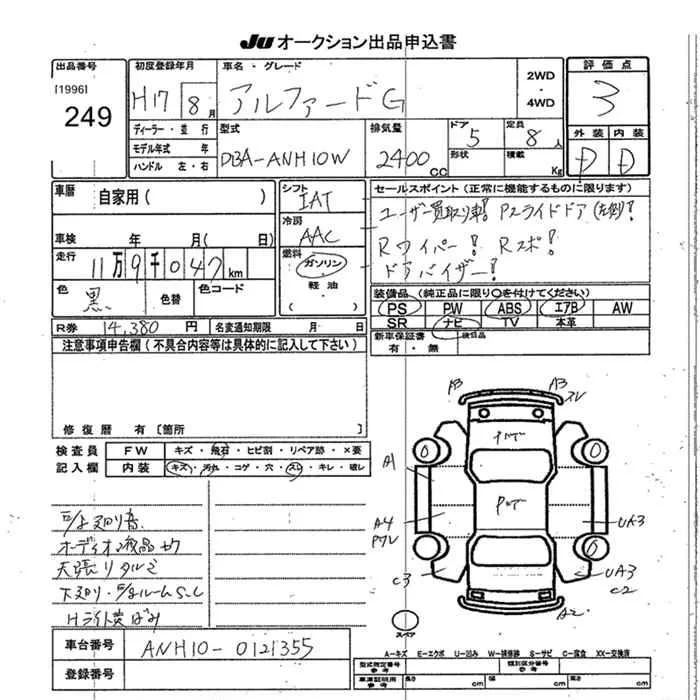 JU オークション出品申込書
出品番号
[1996]
249
初度登録年月
H17 8 月
車名・グレード
アルファードG
2WD
・
4WD
評価点
3
外装 内装
D D
ディーラー・並行
モデル年式 年
ハンドル 左・右
型式
DBA-ANH10W
排気量
2400 cc
ドア
5
定員
8 人
形状
積載
Kg
車歴
自家用( )
車検 年 月( 日)
走行
11万9千047km
色
黒
色替
色コード
シフト
IAT
冷房
AAC
燃料
ガソリン
軽油
( )
セールスポイント(正常に機能するものに限ります)
ユーザー買取り車! Pスライドドア(左側)!
Rワイパー! Rスポ!
ドアバイザー!
装備品(純正品に限り○を付けてください)
PS PW ABS エアB AW
SR ナビ TV 本革
新車保証書
有・無
後日品
R券 14,380 円
名変通知期限 月 日
注意事項申告欄(不具合内容等は具体的に記入して下さい)
修復歴 有〔箇所 〕
検査員
記入欄
FW キズ・飛石・ヒビ割・リペア跡・×要
内装 キズ・汚れ・コゲ・穴・スレ・キレ・破レ
オーディオ液晶
天張りタルミ
下廻り・
Hライト
A3
A3
スレ
A1
A4
UA3
C3
UA3
C2
A2
スペア
車台番号 ANH10-0121355
登録番号
A-キズ E-エクボ U-凹み W-補修跡 S-サビ C-腐食 XX-交換済
型式指定番号
参考
類別区分番号
参考
車庫証明用
参考
長さ cm
幅 cm
高さ cm